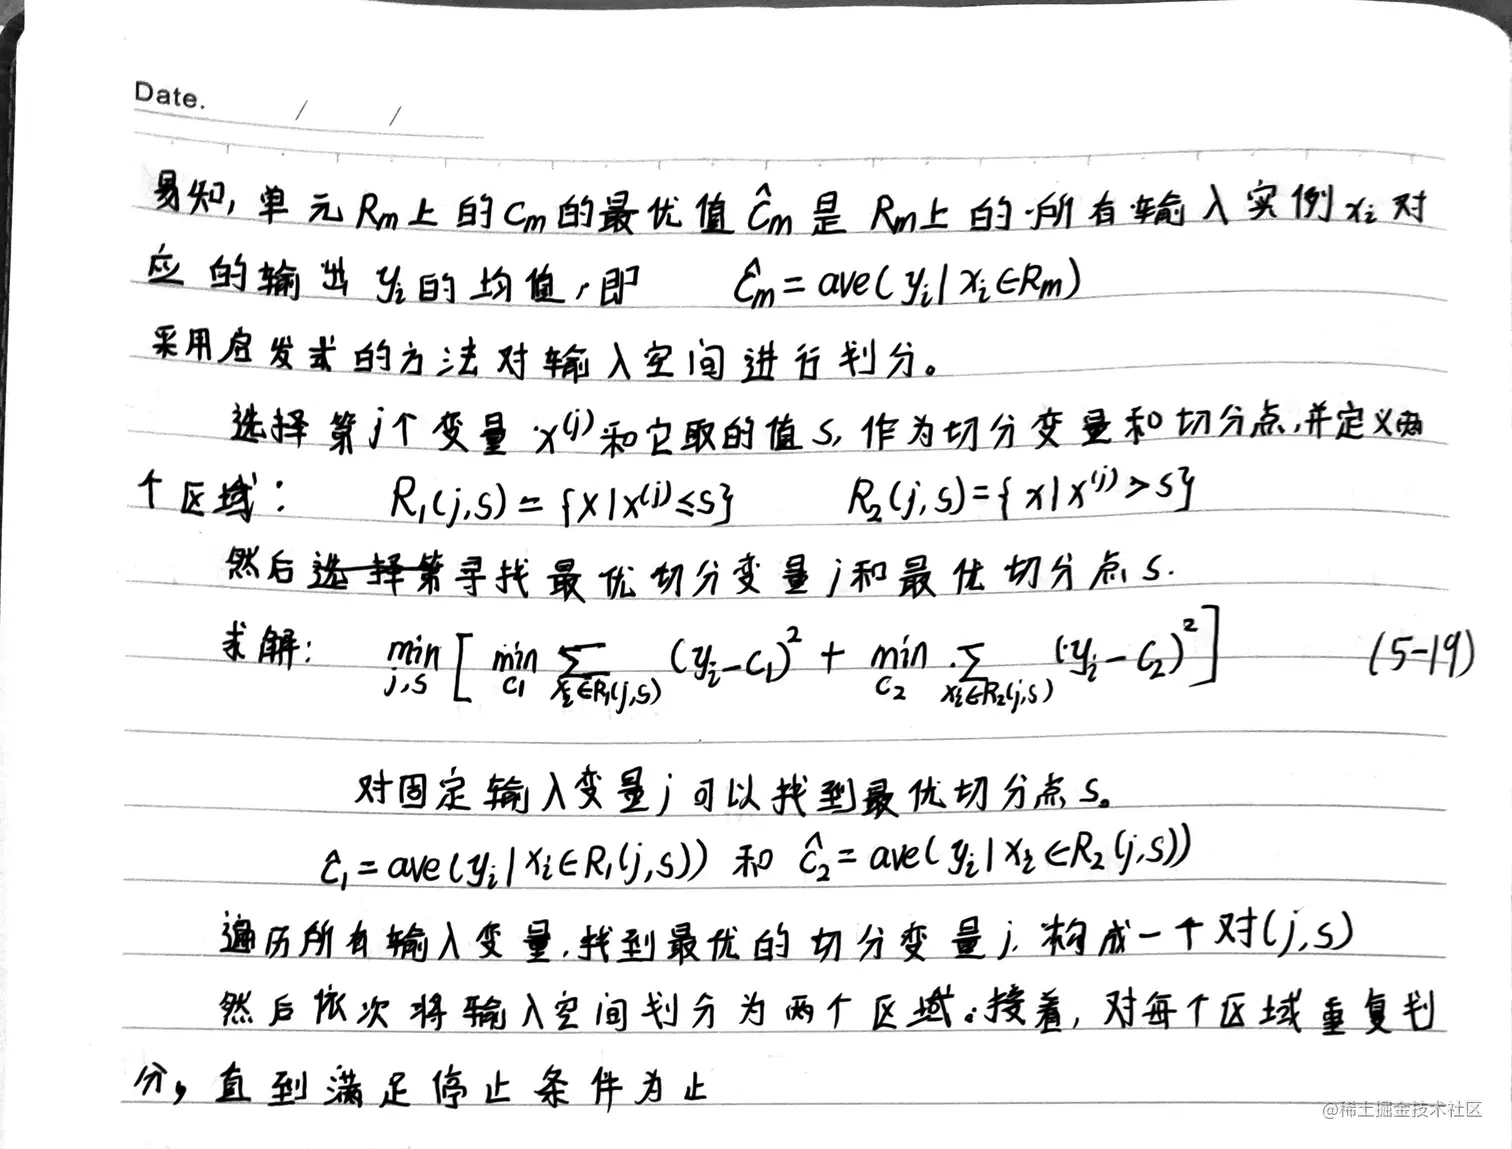 Date. / /
易知, 单元 Rm上的 Cm的最优值 Ĉm是 Rm上的所有输入实例 xi 对
应的输出 yi的均值,即 Ĉm = ave( yi | xi ∈ Rm)
采用启发式的方法对输入空间进行划分。
选择第j个变量 x^(j)和它取的值 s, 作为切分变量和切分点,并定义两
个区域: R₁(j,s) = {x | x^(j) ≤ s} R₂(j,s) = { x | x^(j) > s}
然后选择第寻找最优切分变量 j和最优切分点 s.
求解: min_{j,s} [ min_{C₁} ∑_{xi∈R₁(j,s)} (yi - C₁)² + min_{C₂} ∑_{xi∈R₂(j,s)} (yi - C₂)² ] (5-19)
对固定输入变量 j 可以找到最优切分点 s。
Ĉ₁ = ave(yi | xi ∈ R₁(j,s)) 和 Ĉ₂ = ave( yi | xi ∈ R₂(j,s))
遍历所有输入变量,找到最优的切分变量 j, 构成一个对(j,s)
然后依次将输入空间划分为两个区域。接着, 对每个区域重复划
分, 直到满足停止条件为止
@稀土掘金技术社区